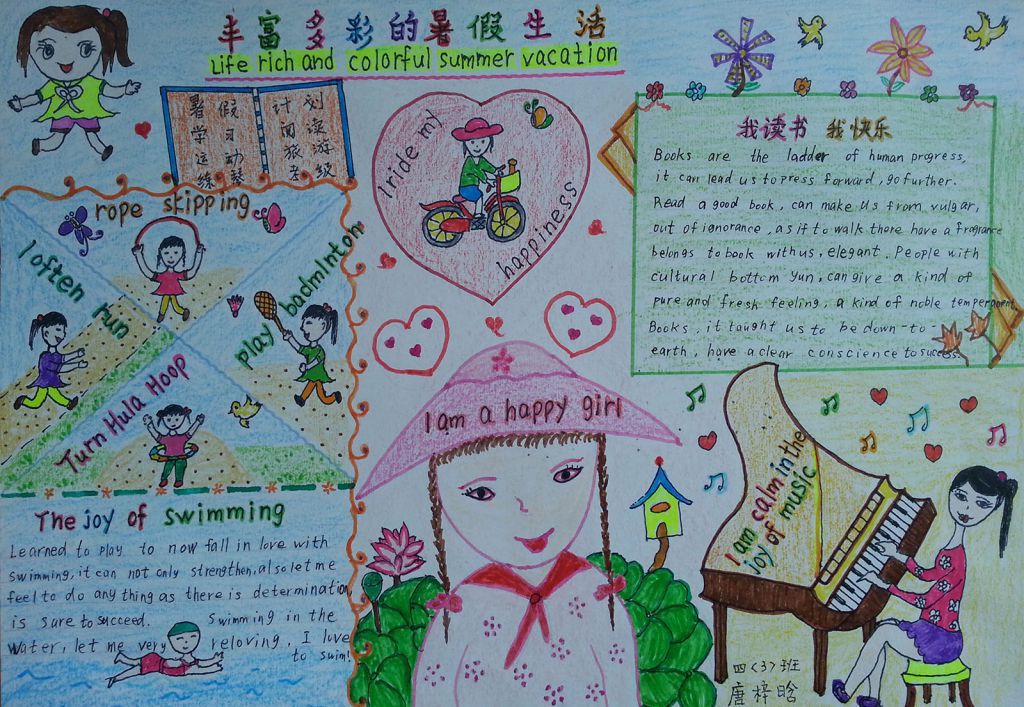 丰富多彩的暑假生活
Life rich and colorful summer vacation
暑假计划
学习阅读
运动旅游
练琴考级
I ride my
happiness
rope skipping
I often run
play badminton
Turn Hula Hoop
我读书 我快乐
Books are the ladder of human progress,
it can lead us to press forward, go further.
Read a good book, can make us from vulgar,
out of ignorance, as if to walk there have a fragrance
belongs to book with us, elegant. People with
cultural bottom Yun, can give a kind of
pure and fresh feeling, a kind of noble temperament.
Books, it taught us to be down-to-
earth, have a clear conscience to success.
I am a happy girl
I am calm in the
joy of music
The joy of swimming
Learned to play to now fall in love with
swimming, it can not only strengthen, also let me
feel to do any thing as there is determination
is sure to succeed. Swimming in the
water, let me very reloving. I love
to swim!
四〈3〉班
唐梓晗